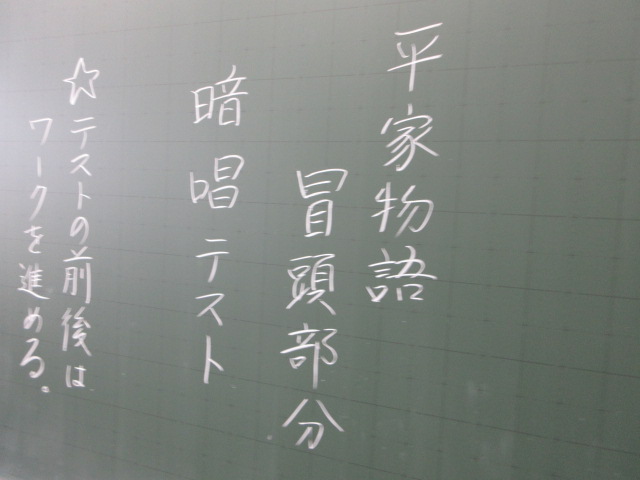 平家物語
冒頭部分
暗唱テスト
☆テストの前後は
ワークを進める。